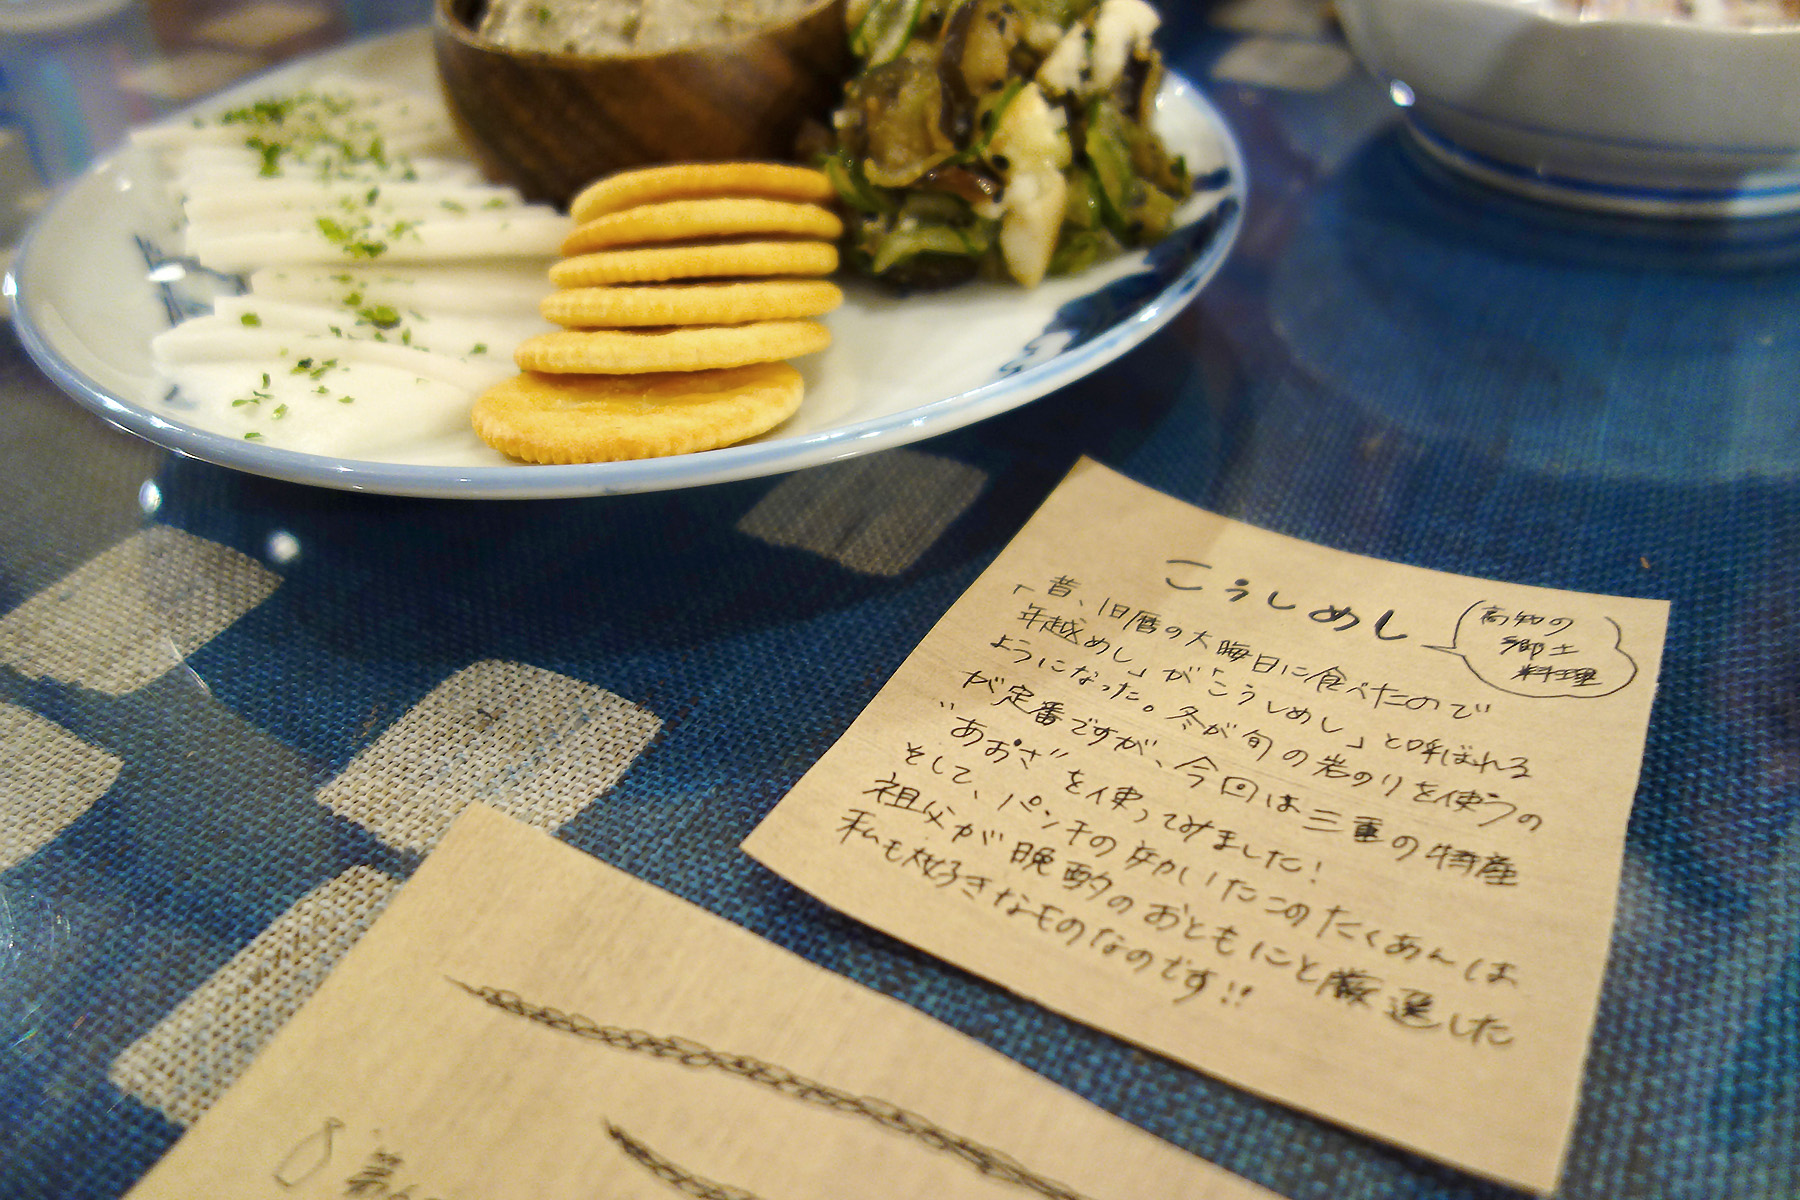 こうしめし
高知の
郷土
料理
「昔、旧暦の大晦日に食べたので
年越めし」が「こうしめし」と呼ばれる
ようになった。冬が旬の岩のりを使うの
が定番ですが、今回は三重の特産
"あおさ"を使ってみました!
そして、パンチの効いたこのたくあんは
祖父が晩酌のおともにと厳選した
私も大好きなものなのです!!